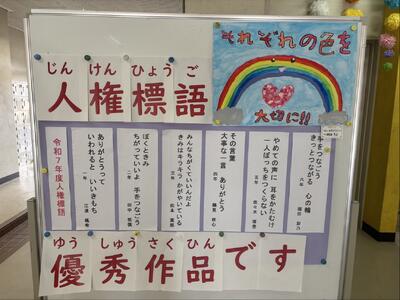 じん けん ひょう ご
人権標語
それぞれの色を
大切に!!
手をつなごう
きっとつながる 心の輪
六年
やめての声 耳をかたむけ
一人ぼっちをつくらない
五年
その言葉
大事な一言 ありがとう
四年
みんながちがっていいんだよ
きみはキラキラかがやいている
三年
ぼくときみ
ちがっていいよ 手をつなごう
二年
ありがとうって
いわれると いいきもち
一年
令和7年度人権標語
ゆう しゅう さく ひん
優秀作品です